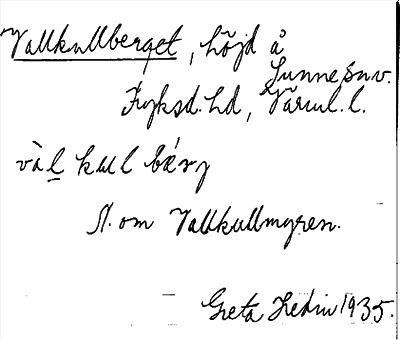 Vallkullberget, höjd å
Sunne snv.
Fryksd. hd, Värml. l.
vàl kul bærj
N. om Vallkullmyren.
Greta Hedin 1935.